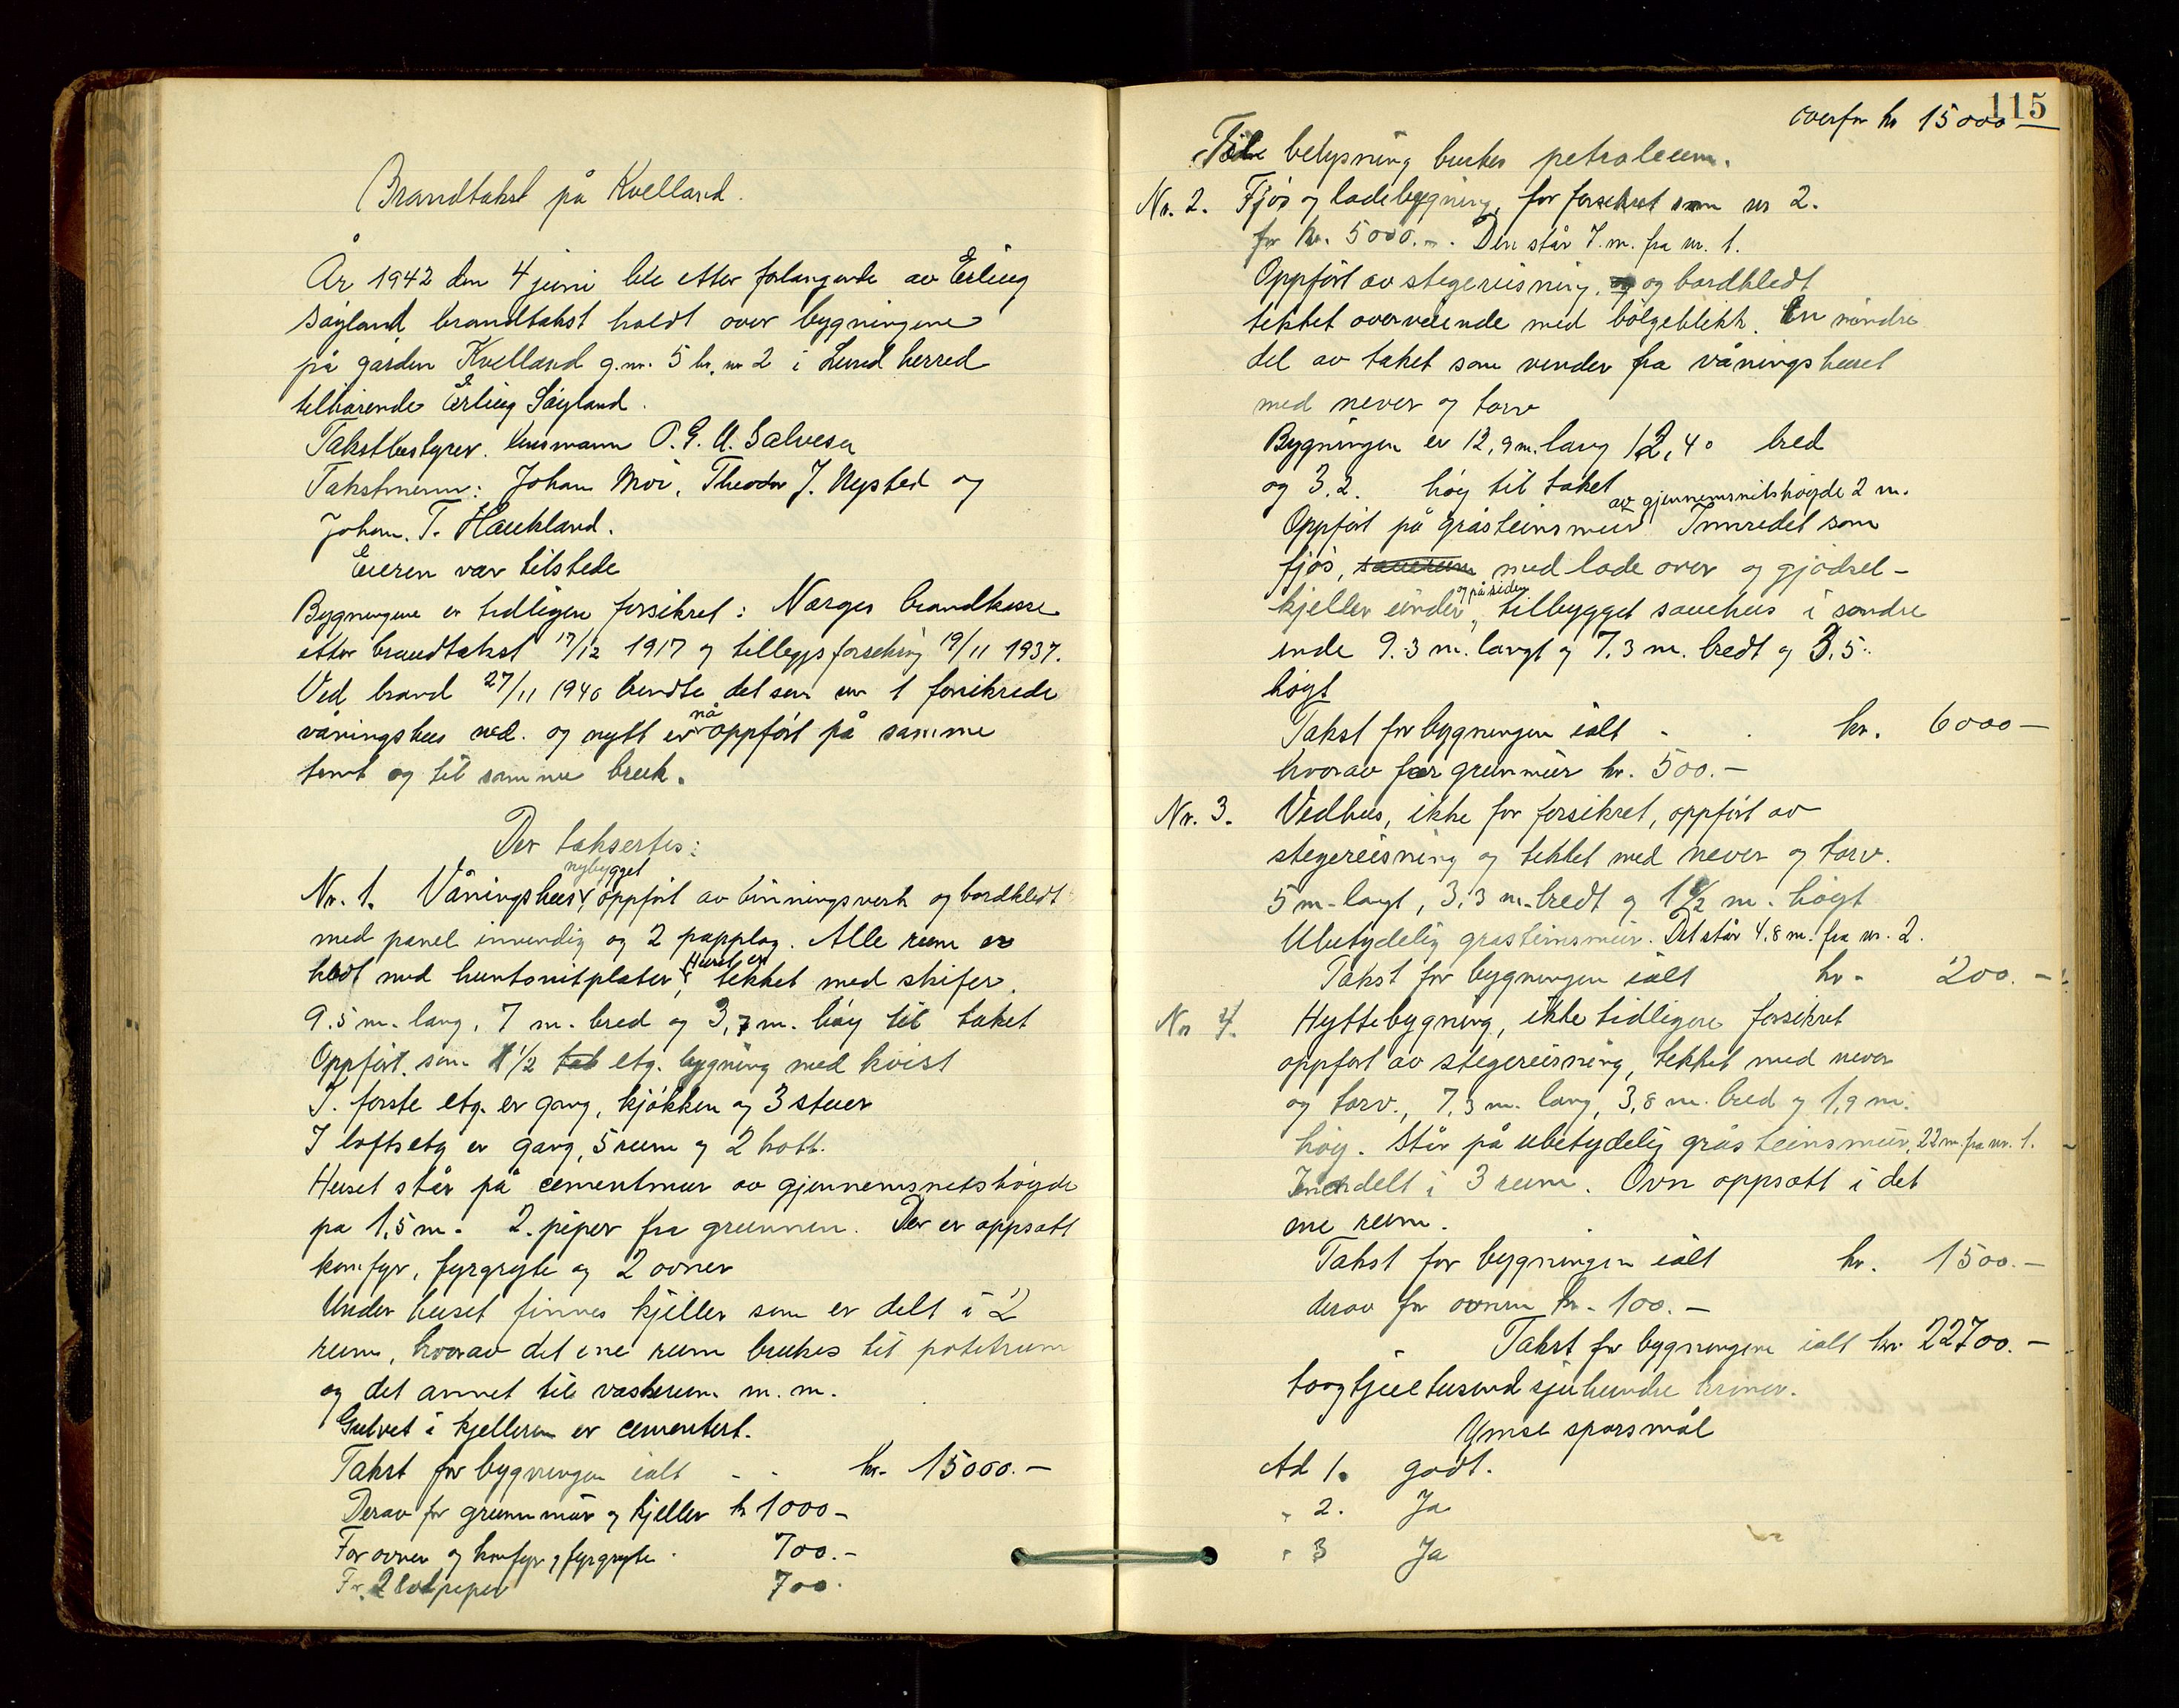 Brandtakst på Kvelland.
År 1942 den 4 juni ble etter forlangende av Erling
Søyland brandtakst holdt over bygningene
på gården Kvelland g.nr. 5 br. nr 2 i Lund herred
tilhørende Erling Søyland.
Takstbestyrer. lensmann P. G. A. Salvesen
Takstmenn: Johan Moi, Theodor J. Nysted og
Johan. T. Haukland.
Eieren var tilstede
Bygningene er tidligere forsikret: Norges brandkasse
etter brandtakst 17/12 1917 og tilleggsforsikring 19/11 1937.
Ved brand 27/11 1940 brendte det som nr 1 forsikrede
våningshus ned. og nytt er nå oppført på samme
tomt og til samme bruk.
Der takseres:
Nr. 1. Våningshus, nybygget oppført av binningsverk og bordkledt
med panel innvendig og 2 papplag. Alle rum er
kledt med huntonitplater, Huset er tekket med skifer.
9.5 m. lang, 7 m. bred og 3,7 m. høy til taket
Oppført som 1 1/2 etg. bygning med kvist
I. første etg. er gang, kjøkken og 3 stuer
I loftsetg er gang, 5 rum og 2 kott.
Huset står på cementmur av gjennemsnitshøyde
på 1,5 m. 2. piper fra grunnen. Der er oppsatt
komfyr, fyrgryte og 2 ovner
Under huset finnes kjeller som er delt i 2
rum, hvorav det ene rum brukes til potetrum
og det annet til vaskerum m. m.
Gulvet i kjelleren er cementert.
Takst for bygningen ialt - - kr. 15000.-
Derav for grunnmur og kjeller kr 1000-
For ovner og komfyr og fyrgryte. 700.-
For 2 piper 700.
115
overfør kr 15000
belysning brukes petroleum.
Nr. 2. Fjøs og ladebygning, før forsikret som nr 2.
for kr. 5000.-. Den står 7. m. fra nr. 1.
Oppført av stegereisning, og bordkledt
tekket overveiende med bølgeblikk. En mindre
del av taket som vender fra våningshuset
med never og torv
Bygningen er 12,9 m. lang 12,40 bred
og 3.2. høy til taket
Oppført på gråsteinsmur av gjennemsnitshøyde 2 m. Innredet som
fjøs, med lade over og gjødsel-
kjeller under, og på siden tilbygget sauehus i søndre
ende 9.3 m. langt og 7.3 m. bredt og 3,5.
høyt
Takst for bygningen ialt - . kr. 6000-
hvorav for grunmur kr. 500.-
Nr. 3. Vedhus, ikke før forsikret, oppført av
stegereisning og tekket med never og torv.
5 m. langt, 3,3 m. bredt og 1 1/2 m. høyt
Ubetydelig gråsteinsmur. Det står 4.8 m. fra nr. 2.
Takst for bygningen ialt kr. 200.-
Nr 4. Hyttebygning, ikke tidligere forsikret
oppført av stegereisning, tekket med never
og torv, 7,3 m. lang, 3,8 m. bred og 1,9 m.
høy. Står på ubetydelig gråsteinsmur, 22 m. fra nr. 1.
Inndelt i 3 rum. Ovn oppsatt i det
ene rum.
Takst for bygningen ialt kr. 1500.-
derav for ovnen kr. 100.-
Takst for bygningene ialt kr. 22700.-
toogtjuetusend sjuhundre kroner.
Ymse spørsmål
Ad 1. godt.
" 2. Ja
" 3 Ja